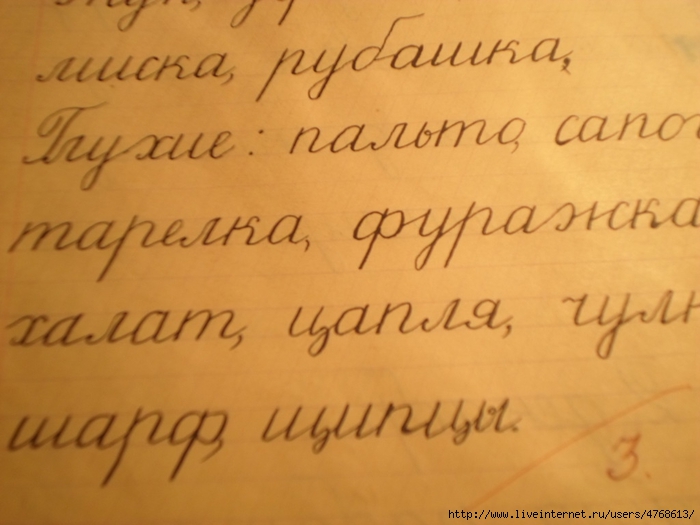 миска, рубашка,
Глухие: пальто, сапог
тарелка, фуражка
халат, цапля, чулк
шарф, щипцы.
3.
http://www.liveinternet.ru/users/4768613/